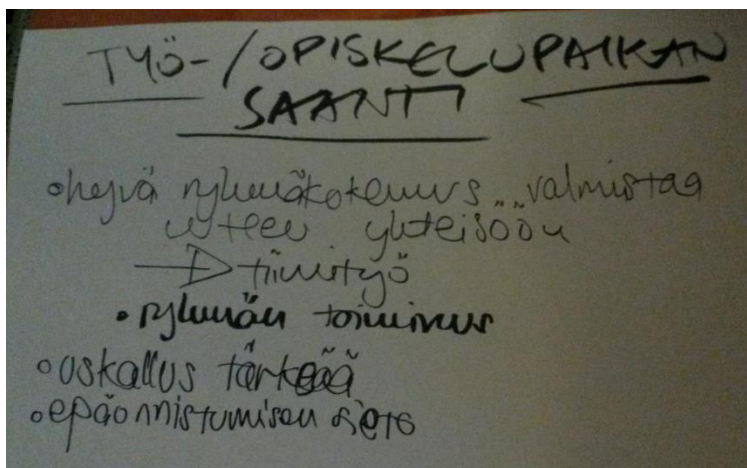 TYÖ-/OPISKELUPAIKAN
SAANTI
•hyvä ryhmäkokemus... valmistaa
uuteen yhteisöön
→ tiimityö
•ryhmän toimivuus
•uskallus tärkeää
•epäonnistumisen sieto